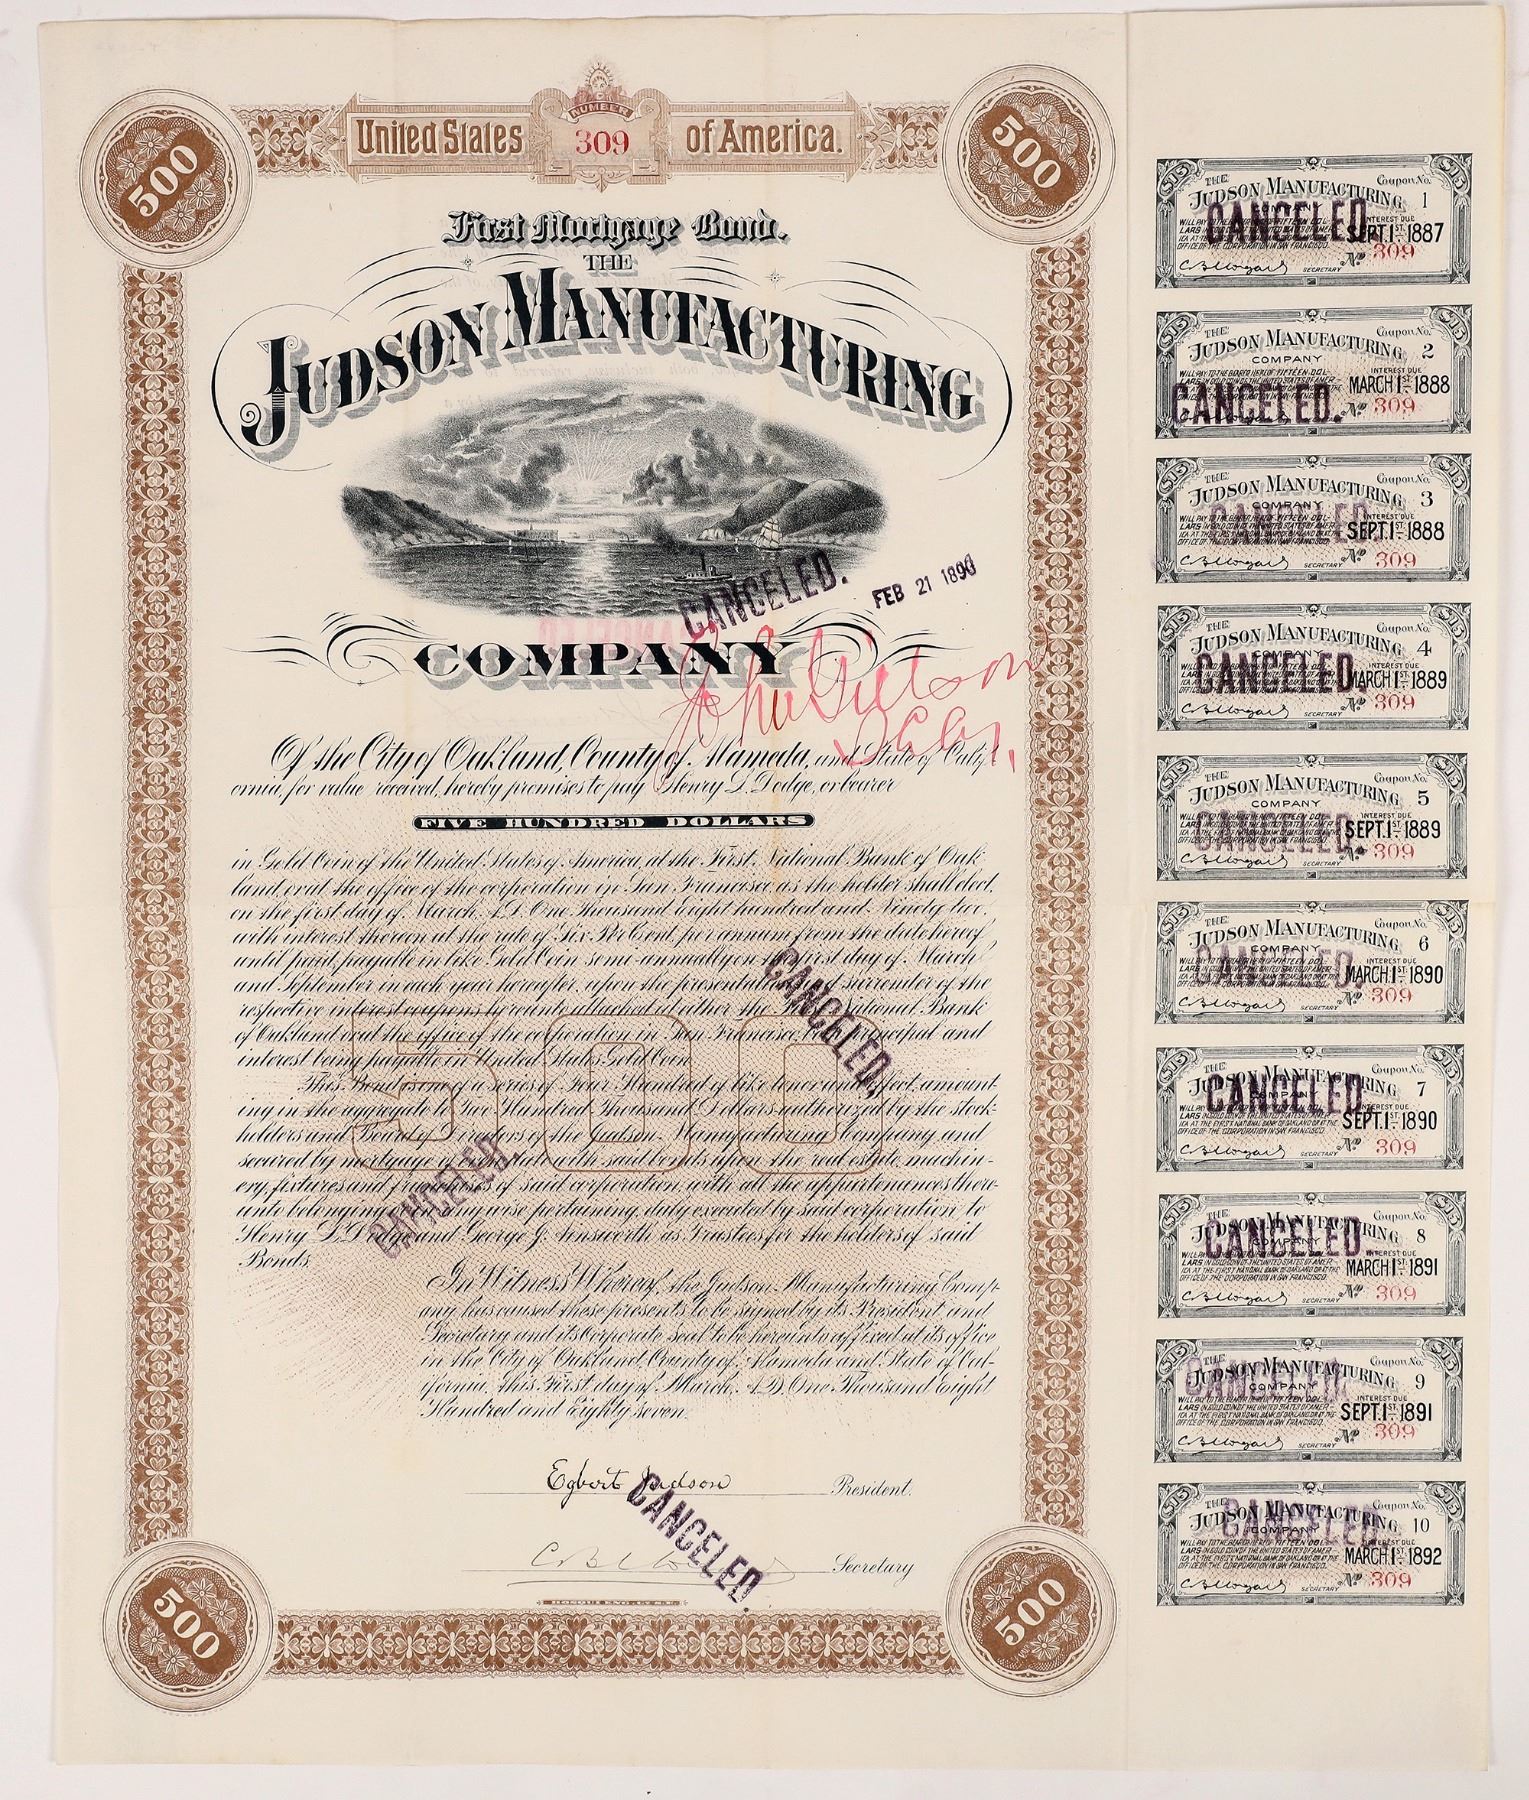 United States NUMBER 309 of America.
500
500
First Mortgage Bond.
THE
JUDSON MANUFACTURING
CANCELED. FEB 21 1890
COMPANY
Of the City of Oakland, County of Alameda, and State of Calif-
ornia, for value received, hereby promises to pay Henry L. Dodge, or bearer
FIVE HUNDRED DOLLARS
in Gold Coin of the United States of America, at the First National Bank of Oak-
land, or at the office of the corporation in San Francisco, as the holder shall elect,
on the first day of March, A.D. One Thousand Eight hundred and Ninety two,
with interest thereon at the rate of Six Per Cent. per annum from the date hereof
until paid, payable in like Gold Coin semi-annually on the first day of March
and September in each year hereafter, upon the presentation and surrender of the
respective interest coupons hereunto attached, at either the First National Bank
of Oakland or at the office of the corporation in San Francisco, both principal and
interest being payable in United States Gold Coin.
This Bond is one of a series of Four Hundred of like tenor and effect, amount-
ing in the aggregate to Two Hundred Thousand Dollars authorized by the stock-
holders and Board of Directors of the Judson Manufacturing Company and
secured by mortgage of even date with said bonds upon the real estate, machin-
ery, fixtures and franchises of said corporation, with all the appurtenances there-
unto belonging or in any wise pertaining, duly executed by said corporation, to
Henry L. Dodge and George J. Ainsworth as Trustees for the holders of said
Bonds.
500
CANCELED.
CANCELED.
In Witness Whereof, the Judson Manufacturing Comp-
any has caused these presents to be signed by its President and
Secretary and its Corporate Seal to be hereunto affixed at its office
in the City of Oakland, County of Alameda and State of Cal-
ifornia, this First day of March, A.D. One Thousand Eight
Hundred and Eighty seven.
Egbert Judson President.
CANCELED.
Secretary
500
500
THE JUDSON MANUFACTURING COMPANY Coupon No. 1
WILL PAY TO THE BEARER HEREOF FIFTEEN DOL-
LARS IN GOLD COIN OF THE UNITED STATES OF AMER-
ICA AT THE FIRST NATIONAL BANK OF OAKLAND OR AT THE
OFFICE OF THE CORPORATION IN SAN FRANCISCO.
INTEREST DUE SEPT. 1ST 1887
No 309
SECRETARY
$15 $15
CANCELED.
THE JUDSON MANUFACTURING COMPANY Coupon No. 2
WILL PAY TO THE BEARER HEREOF FIFTEEN DOL-
LARS IN GOLD COIN OF THE UNITED STATES OF AMER-
ICA AT THE FIRST NATIONAL BANK OF OAKLAND OR AT THE
INTEREST DUE MARCH 1ST 1888
No 309
$15 $15
CANCELED.
THE JUDSON MANUFACTURING COMPANY Coupon No. 3
WILL PAY TO THE BEARER HEREOF FIFTEEN DOL-
LARS IN GOLD COIN OF THE UNITED STATES OF AMER-
ICA AT THE FIRST NATIONAL BANK OF OAKLAND OR AT THE
OFFICE OF THE CORPORATION IN SAN FRANCISCO.
INTEREST DUE SEPT. 1ST 1888
No 309
SECRETARY
$15 $15
CANCELED
THE JUDSON MANUFACTURING COMPANY Coupon No. 4
INTEREST DUE MARCH 1ST 1889
No 309
SECRETARY
$15 $15
CANCELED.
THE JUDSON MANUFACTURING COMPANY Coupon No. 5
INTEREST DUE SEPT. 1ST 1889
No 309
SECRETARY
$15 $15
CANCELED.
THE JUDSON MANUFACTURING COMPANY Coupon No. 6
INTEREST DUE MARCH 1ST 1890
No 309
SECRETARY
$15 $15
CANCELED.
THE JUDSON MANUFACTURING COMPANY Coupon No. 7
INTEREST DUE SEPT. 1ST 1890
No 309
SECRETARY
$15 $15
CANCELED
THE JUDSON MANUFACTURING COMPANY Coupon No. 8
INTEREST DUE MARCH 1ST 1891
No 309
SECRETARY
$15 $15
CANCELED
THE JUDSON MANUFACTURING COMPANY Coupon No. 9
INTEREST DUE SEPT. 1ST 1891
No 309
SECRETARY
$15 $15
CANCELED.
THE JUDSON MANUFACTURING COMPANY Coupon No. 10
INTEREST DUE MARCH 1ST 1892
No 309
SECRETARY
$15 $15
CANCELED.